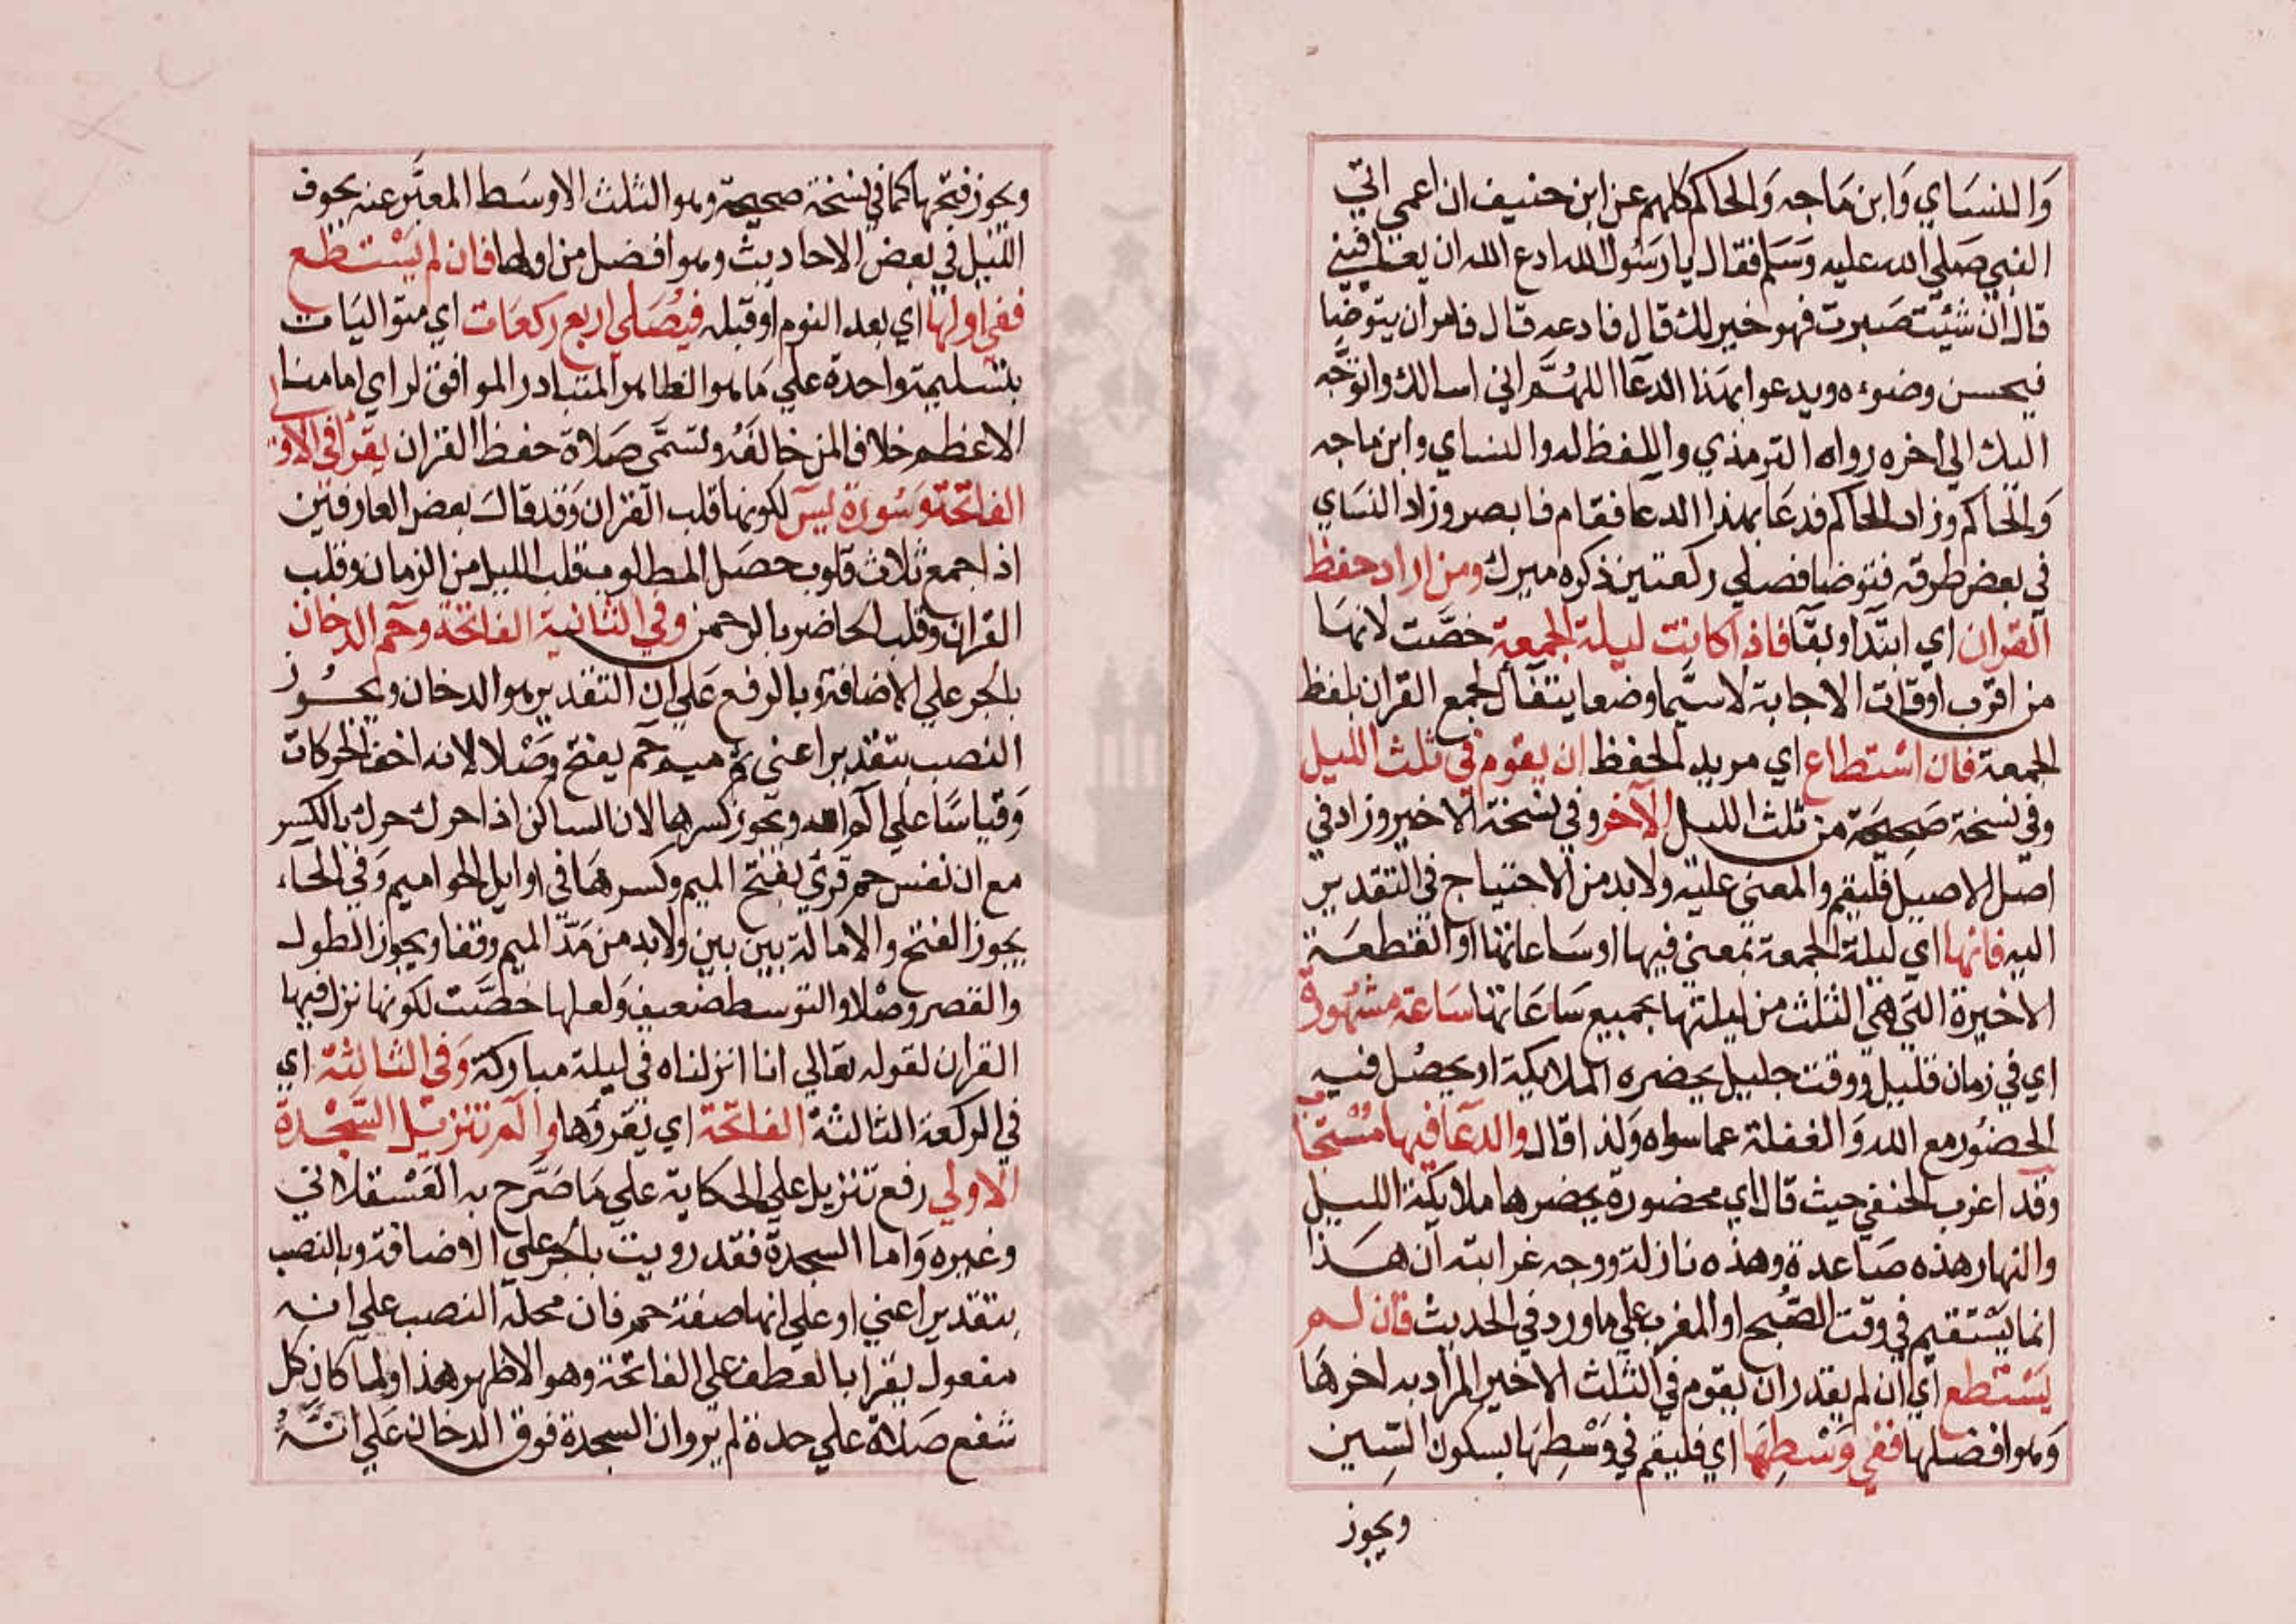 والنساي وابن ماجه والحاكم كلهم عن ابن حنيف ان اعمى اتي
النبي صلي الله عليه وسلم فقال يا رسول الله ادع الله ان يعافيني
قال ان شئت صبرت فهو خير لك قال فادعه قال فامر ان يتوضا
فيحسن وضوءه ويدعوا بهذا الدعا اللهم اني اسالك واتوجه
اليك الي اخره رواه الترمذي واللفظ له والنساي وابن ماجه
والحاكم وزاد الحاكم فدعا بهذا الدعا فقام فابصر وزاد النساي
في بعض طرقه فتوضا فصلي ركعتين ذكره ميرك ومن اراد حفظ
القران اي ابتدا وبقا فاذا كانت ليلة الجمعة خصت لانها
من اقرب اوقات الاجابة لا سيما وضعا يتفأل لجمع القران بلفظ
الجمعة فان استطاع اي مريد الحفظ ان يقوم في ثلث الليل
وفي نسخة صحيحة من ثلث الليل الآخر وفي نسخة الاخير وزاد في
اصل الاصيل فليقم والمعني عليه ولا بد من الاحتياج في التقدير
اليه فانها اي ليلة الجمعة بمعني فيها او ساعاتها او القطعة
الاخيرة التي هي الثلث من ليلتها بجميع ساعاتها ساعة مشهودة
اي في زمان قليل ووقت جليل يحضره الملايكة او يحصل فيه
الحضور مع الله والغفلة عما سواه ولذا قال والدعا فيها مستجاب
وقد اغرب الحنفي حيث قال اي محضورة يحضرها ملايكة الليل
والنهار هذه صاعدة وهذه نازلة ووجه غرابته ان هذا
انما يستقيم في وقت الصبح او المغرب علي ما ورد في الحديث فان لم
يستطع اي ان لم يقدر ان يقوم في الثلث الاخير المراد به اخرها
وهو افضلها ففي وسطها اي فليقم في وسطها بسكون السين
ويجوز
ويجوز فتحها كما في نسخة صحيحة وهو الثلث الاوسط المعبر عنه بجوف
الليل في بعض الاحاديث وهو افضل من اولها فان لم يستطع
ففي اولها اي بعد النوم او قبله فيصلي اربع ركعات اي متواليات
بتسليمة واحدة علي ما هو الظاهر المتبادر الموافق لراي امامنا
الاعظم خلافا لمن خالفه وتسمى صلاة حفظ القران يقرأ في الاولى
الفاتحة وسورة يس لكونها قلب القران وقد قال بعض العارفين
اذا جمع ثلاث قلوب حصل المطلوب قلب الليل من الزمان وقلب
القران وقلب الحاضر بالرحمن وفي الثانية الفاتحة وحم الدخان
بالجر علي الاضافة وبالرفع علي ان التقدير هو الدخان ويجوز
النصب بتقدير اعني ثم ميم حم يفتح وصلا لانه اخف الحركات
وقياسا علي الم الله ويجوز كسرها لان الساكن اذا حرك حرك بالكسر
مع ان نفس حم قري بفتح الميم وكسرها في اوايل الحواميم وفي الحاء
يجوز الفتح والامالة بين بين ولا بد من مد الميم وقفا ويجوز الطول
والقصر وصلا والتوسط ضعيف ولعلها خصت لكونها نزل فيها
القران لقوله تعالي انا انزلناه في ليلة مباركة وفي الثالثة اي
في الركعة الثالثة الفاتحة اي يقرؤها والم تنزيل السجدة
الاولي رفع تنزيل علي الحكاية علي ما صرح به العسقلاني
وغيره واما السجدة فقد رويت بالجر علي الاضافة وبالنصب
بتقدير اعني او علي انها صفة حم فان محله النصب علي انه
مفعول يقرا بالعطف علي الفاتحة وهو الاظهر هذا ولما كان كل
شفع صلاة علي حدة لم يرو ان السجدة فوق الدخان علي انه